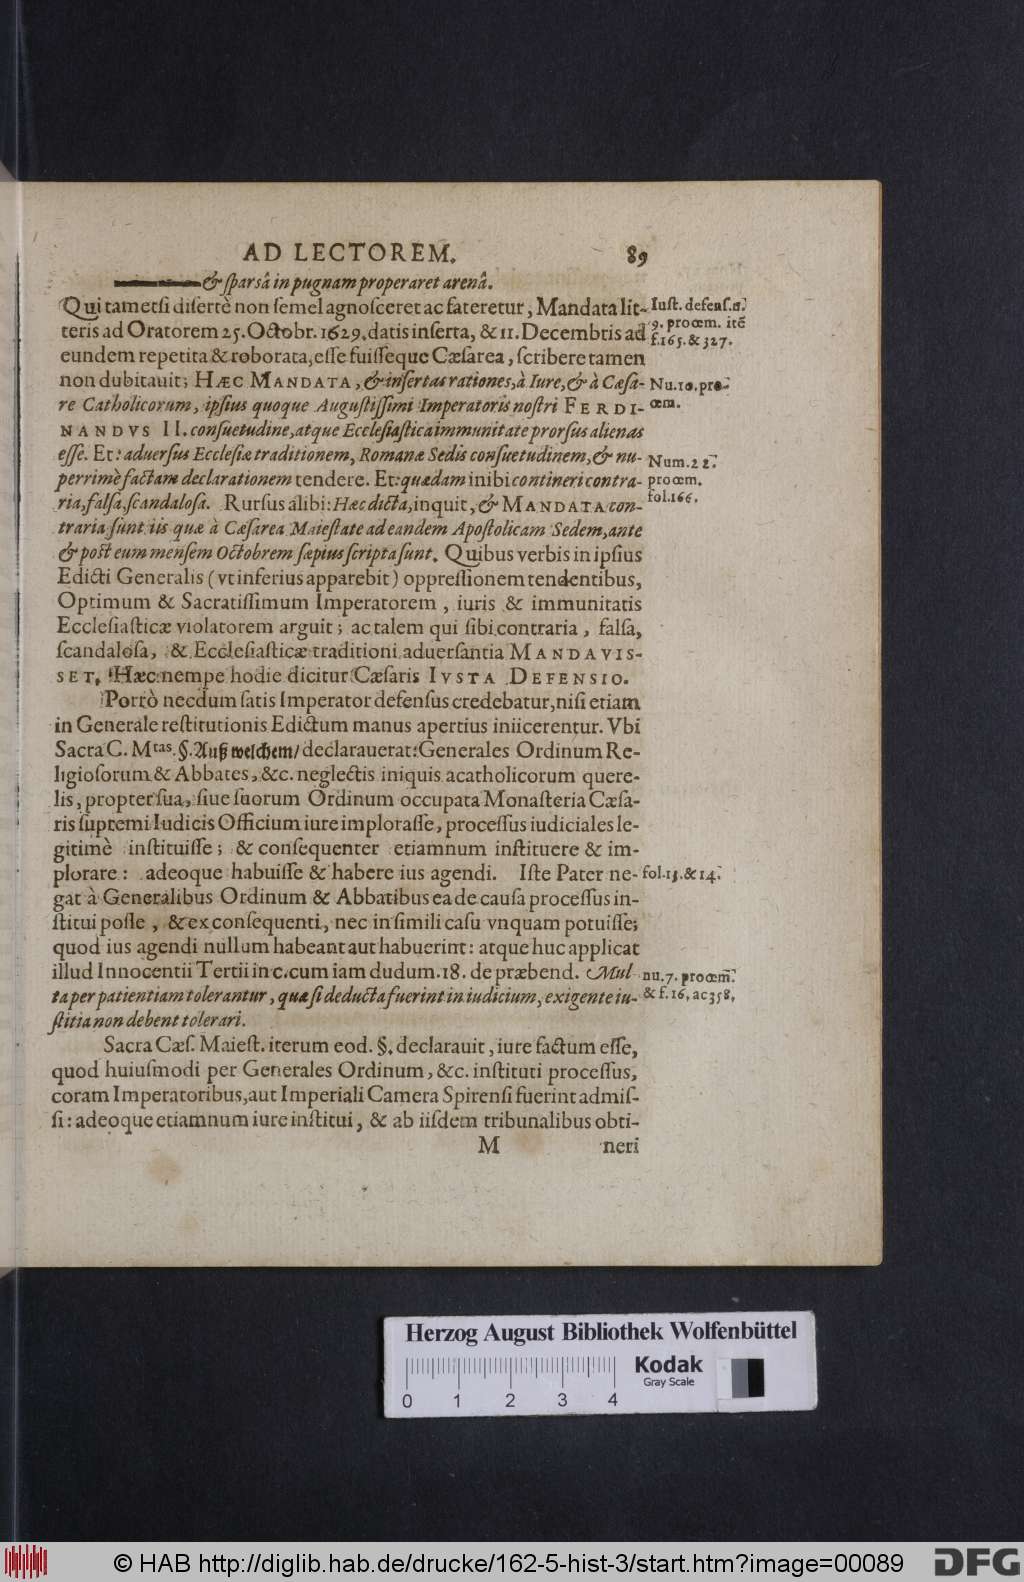 AD LECTOREM. 89
& ſparsâ in pugnam properaret arenâ.
Qui tametſi diſertè non ſemel agnoſceret ac fateretur, Mandata lit-
teris ad Oratorem 25. Octobr. 1629. datis inſerta, & 11. Decembris ad
eundem repetita & roborata, eſſe fuiſſeque Cæſarea, ſcribere tamen
non dubitauit; HÆC MANDATA, & inſertas rationes, à Iure, & à Cæſa-
re Catholicorum, ipſius quoque Auguſtiſſimi Imperatoris noſtri FERDI-
NANDVS II. conſuetudine, atque Eccleſiaſtica immunitate prorſus alienas
eſſe. Et: aduerſus Eccleſiæ traditionem, Romanæ Sedis conſuetudinem, & nu-
perrimè factam declarationem tendere. Et: quædam inibi contineri contra-
ria, falſa, ſcandaloſa. Rurſus alibi: Hæc dicta, inquit, & MANDATA con-
traria ſunt iis quæ à Cæſarea Maieſtate ad eandem Apoſtolicam Sedem, ante
& poſt eum menſem Octobrem ſæpius ſcripta ſunt. Quibus verbis in ipſius
Edicti Generalis (vt inferius apparebit) oppreſſionem tendentibus,
Optimum & Sacratiſſimum Imperatorem, iuris & immunitatis
Eccleſiaſticæ violatorem arguit; ac talem qui ſibi contraria, falſa,
ſcandaloſa, & Eccleſiaſticæ traditioni aduerſantia MANDAVIS-
SET. Hæc nempe hodie dicitur Cæſaris IVSTA DEFENSIO.
Porrò necdum ſatis Imperator defenſus credebatur, niſi etiam
in Generale reſtitutionis Edictum manus apertius iniicerentur. Vbi
Sacra C. Mtas. §. Auß welchem/ declarauerat: Generales Ordinum Re-
ligioſorum & Abbates, &c. neglectis iniquis acatholicorum quere-
lis, propter ſua, ſiue ſuorum Ordinum occupata Monaſteria Cæſa-
ris ſupremi Iudicis Officium iure imploraſſe, proceſſus iudiciales le-
gitimè inſtituiſſe; & conſequenter etiamnum inſtituere & im-
plorare: adeoque habuiſſe & habere ius agendi. Iſte Pater ne-
gat à Generalibus Ordinum & Abbatibus ea de cauſa proceſſus in-
ſtitui poſſe, & ex conſequenti, nec in ſimili caſu vnquam potuiſſe;
quod ius agendi nullum habeant aut habuerint: atque huc applicat
illud Innocentii Tertii in c. cum iam dudum. 18. de præbend. Mul
ta per patientiam tolerantur, quæ ſi deducta fuerint in iudicium, exigente iu-
ſtitia non debent tolerari.
Sacra Cæſ. Maieſt. iterum eod. §. declarauit, iure factum eſſe,
quod huiuſmodi per Generales Ordinum, &c. inſtituti proceſſus,
coram Imperatoribus, aut Imperiali Camera Spirenſi fuerint admiſ-
ſi: adeoque etiamnum iure inſtitui, & ab iiſdem tribunalibus obti-
M neri
Iuſt. defenſ. n.
9. prooem. itẽ
f. 165. & 327.
Nu. 10. pro-
œm.
Num. 22.
prooem.
fol. 166.
fol. 13. & 14.
nu. 7. prooem.
& f. 16, ac 358.
Herzog August Bibliothek Wolfenbüttel
Kodak
Gray Scale
0 1 2 3 4
© HAB http://diglib.hab.de/drucke/162-5-hist-3/start.htm?image=00089
DFG